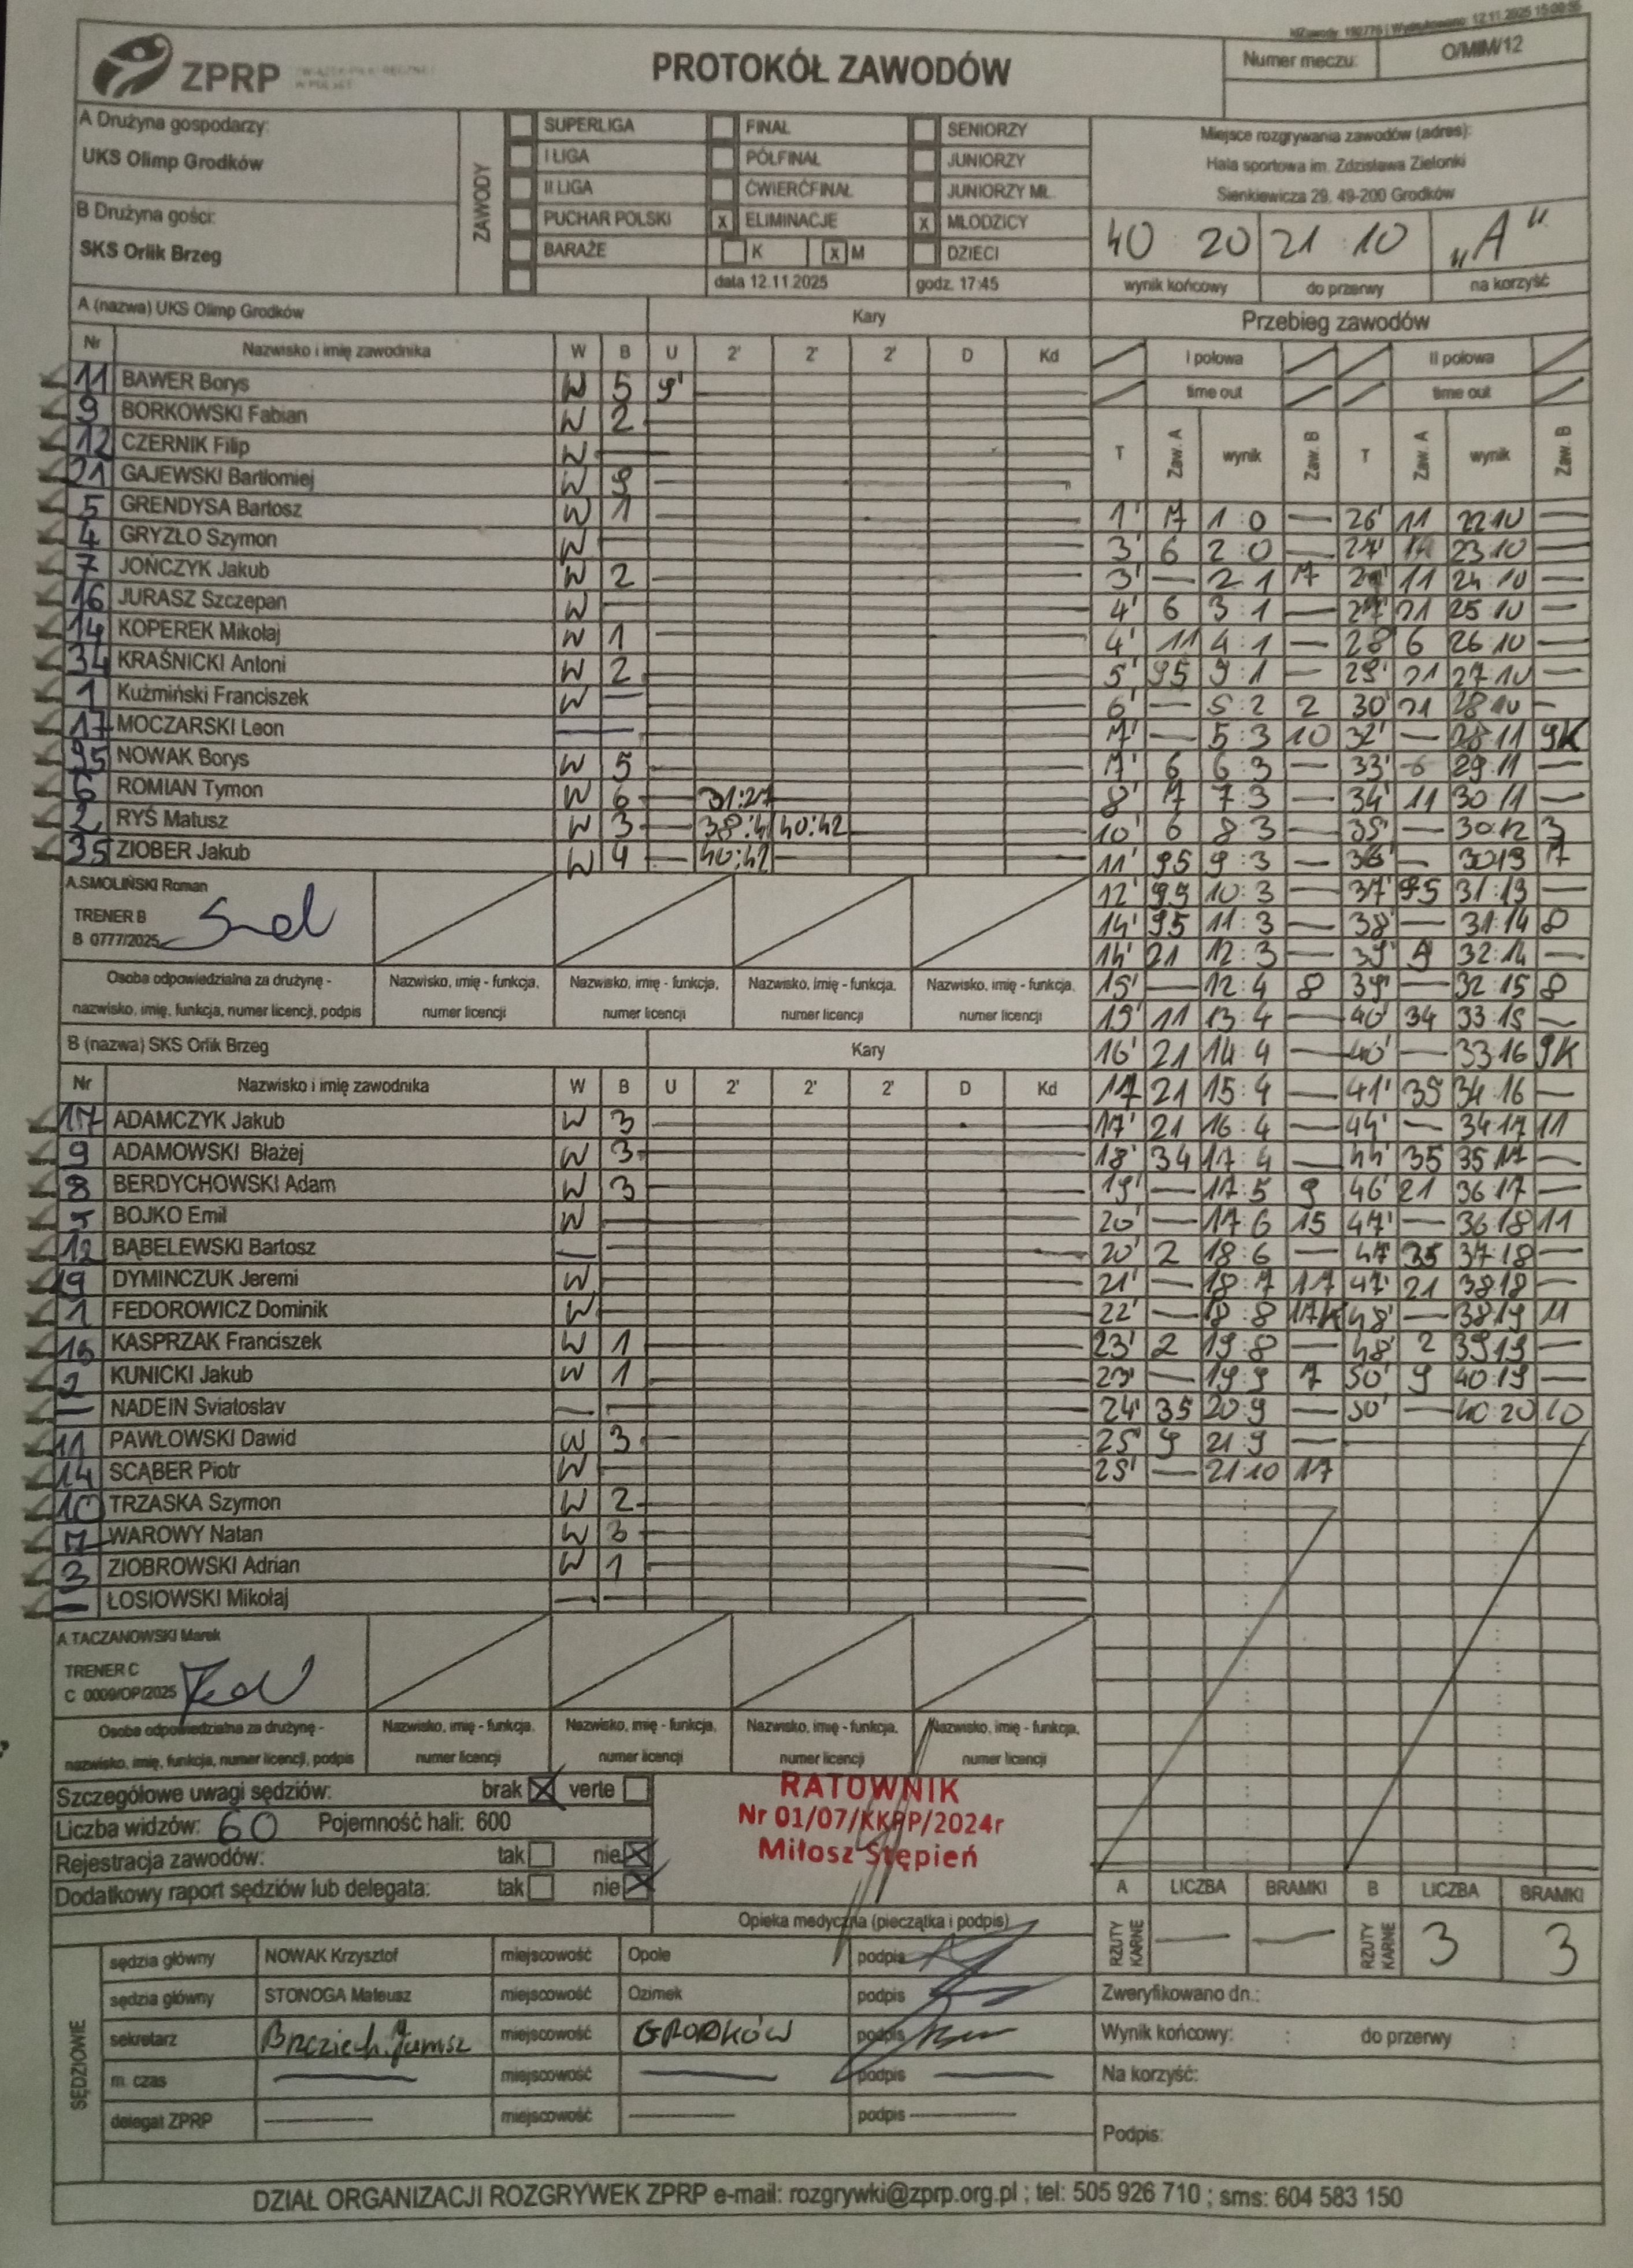 idZawody: 192776 | Wydrukowano: 12.11.2025 15:00:55
ZPRP
PROTOKÓŁ ZAWODÓW
Numer meczu: O/MłM/12
A Drużyna gospodarzy:
UKS Olimp Grodków
B Drużyna gości:
SKS Orlik Brzeg
ZAWODY
SUPERLIGA FINAŁ SENIORZY
I LIGA PÓŁFINAŁ JUNIORZY
II LIGA ĆWIERĆFINAŁ JUNIORZY MŁ.
PUCHAR POLSKI x ELIMINACJE x MŁODZICY
BARAŻE K x M DZIECI
data 12.11.2025 godz. 17:45
Miejsce rozgrywania zawodów (adres):
Hala sportowa im. Zdzisława Zielonki
Sienkiewicza 29, 49-200 Grodków
40 20 21 : 10 „A"
wynik końcowy do przerwy na korzyść
A (nazwa) UKS Olimp Grodków Kary
Nr Nazwisko i imię zawodnika W B U 2' 2' 2' D Kd
11 BAWER Borys W 5 9'
9 BORKOWSKI Fabian W 2
12 CZERNIK Filip W
21 GAJEWSKI Bartłomiej W 9
5 GRENDYSA Bartosz W 1
4 GRYZŁO Szymon W
7 JOŃCZYK Jakub W 2
16 JURASZ Szczepan W
14 KOPEREK Mikołaj W 1
34 KRAŚNICKI Antoni W 2
1 Kuźmiński Franciszek W —
17 MOCZARSKI Leon —
95 NOWAK Borys W 5
6 ROMIAN Tymon W 6 31:27
2 RYŚ Matusz W 3 38:41 40:42
35 ZIOBER Jakub W 4 40:42
A.SMOLIŃSKI Roman
TRENER B
B 0777/2025
Osoba odpowiedzialna za drużynę - nazwisko, imię, funkcja, numer licencji, podpis
Nazwisko, imię - funkcja, numer licencji
Nazwisko, imię - funkcja, numer licencji
Nazwisko, imię - funkcja, numer licencji
Nazwisko, imię - funkcja, numer licencji
B (nazwa) SKS Orlik Brzeg Kary
Nr Nazwisko i imię zawodnika W B U 2' 2' 2' D Kd
17 ADAMCZYK Jakub W 3
9 ADAMOWSKI Błażej W 3
8 BERDYCHOWSKI Adam W 3
BOJKO Emil W
12 BĄBELEWSKI Bartosz —
19 DYMINCZUK Jeremi W
1 FEDOROWICZ Dominik W
15 KASPRZAK Franciszek W 1
2 KUNICKI Jakub W 1
— NADEIN Sviatoslav —
11 PAWŁOWSKI Dawid W 3
14 SCĄBER Piotr W
10 TRZASKA Szymon W 2
7 WAROWY Natan W 3
3 ZIOBROWSKI Adrian W 1
— ŁOSIOWSKI Mikołaj —
A.TACZANOWSKI Marek
TRENER C
C 0009/OP/2025
Osoba odpowiedzialna za drużynę - nazwisko, imię, funkcja, numer licencji, podpis
Nazwisko, imię - funkcja, numer licencji
Nazwisko, imię - funkcja, numer licencji
Nazwisko, imię - funkcja, numer licencji
Nazwisko, imię - funkcja, numer licencji
Przebieg zawodów
I połowa II połowa
time out time out
T Zaw. A wynik Zaw. B T Zaw. A wynik Zaw. B
1' 7 1:0 — 26' 11 22 10 —
3' 6 2:0 — 27' 23 10 —
3' — 2 1 7 11 24:10 —
4' 6 3:1 — 27' 21 25 10 —
4' 11 4:1 — 28' 6 26 10 —
5' 95 :1 — 29' 21 27 10 —
6' — 5:2 2 30' 21 28 10 —
7' — 5:3 10 32' — 28 11 9K
7' 6 6:3 — 33' 6 29:11 —
8' 7 7:3 — 34' 11 30 11 —
10' 6 8:3 — 35' — 30:12 3
11' 95 9:3 — 36' — 30 13 7
12' 95 10:3 — 37' 95 31:13 —
14' 95 11:3 — 38' — 31:14 8
14' 21 12:3 — 39' 32:14 —
15' — 12:4 8 39' — 32:15 8
15' 11 13:4 — 40' 34 33:15 —
16' 21 14:4 — 40' — 33:16 9K
17' 21 15:4 — 41' 35 34 16 —
17' 21 16:4 — 44' — 34 17 11
18' 34 17:4 — 44' 35 35 17 —
19' — 17:5 9 46' 21 36:17 —
20' — 17:6 15 47' — 36 18 11
20' 2 18:6 — 47 35 37:18 —
21' — 18:7 17 47' 21 38 18 —
22' — 18:8 17K 48' — 38 19 11
23' 2 19:8 — 48' 2 39 19 —
23' — 19:9 7 50' 9 40:19 —
24' 35 20:9 — 50' — 40:20 10
25' 9 21:9 —
25' — 21:10 17
Szczegółowe uwagi sędziów: brak x verte
Liczba widzów: 60 Pojemność hali: 600
Rejestracja zawodów: tak nie x
Dodatkowy raport sędziów lub delegata: tak nie x
RATOWNIK
Nr 01/07/KKPP/2024r
Miłosz Stępień
Opieka medyczna (pieczątka i podpis)
A LICZBA BRAMKI B LICZBA BRAMKI
RZUTY KARNE — — RZUTY KARNE 3 3
SĘDZIOWIE
sędzia główny NOWAK Krzysztof miejscowość Opole podpis
sędzia główny STONOGA Mateusz miejscowość Ozimek podpis
sekretarz miejscowość GRODKÓW podpis
m. czas — miejscowość — podpis —
delegat ZPRP — miejscowość — podpis —
Zweryfikowano dn.:
Wynik końcowy: : do przerwy :
Na korzyść:
Podpis:
DZIAŁ ORGANIZACJI ROZGRYWEK ZPRP e-mail: rozgrywki@zprp.org.pl ; tel: 505 926 710 ; sms: 604 583 150